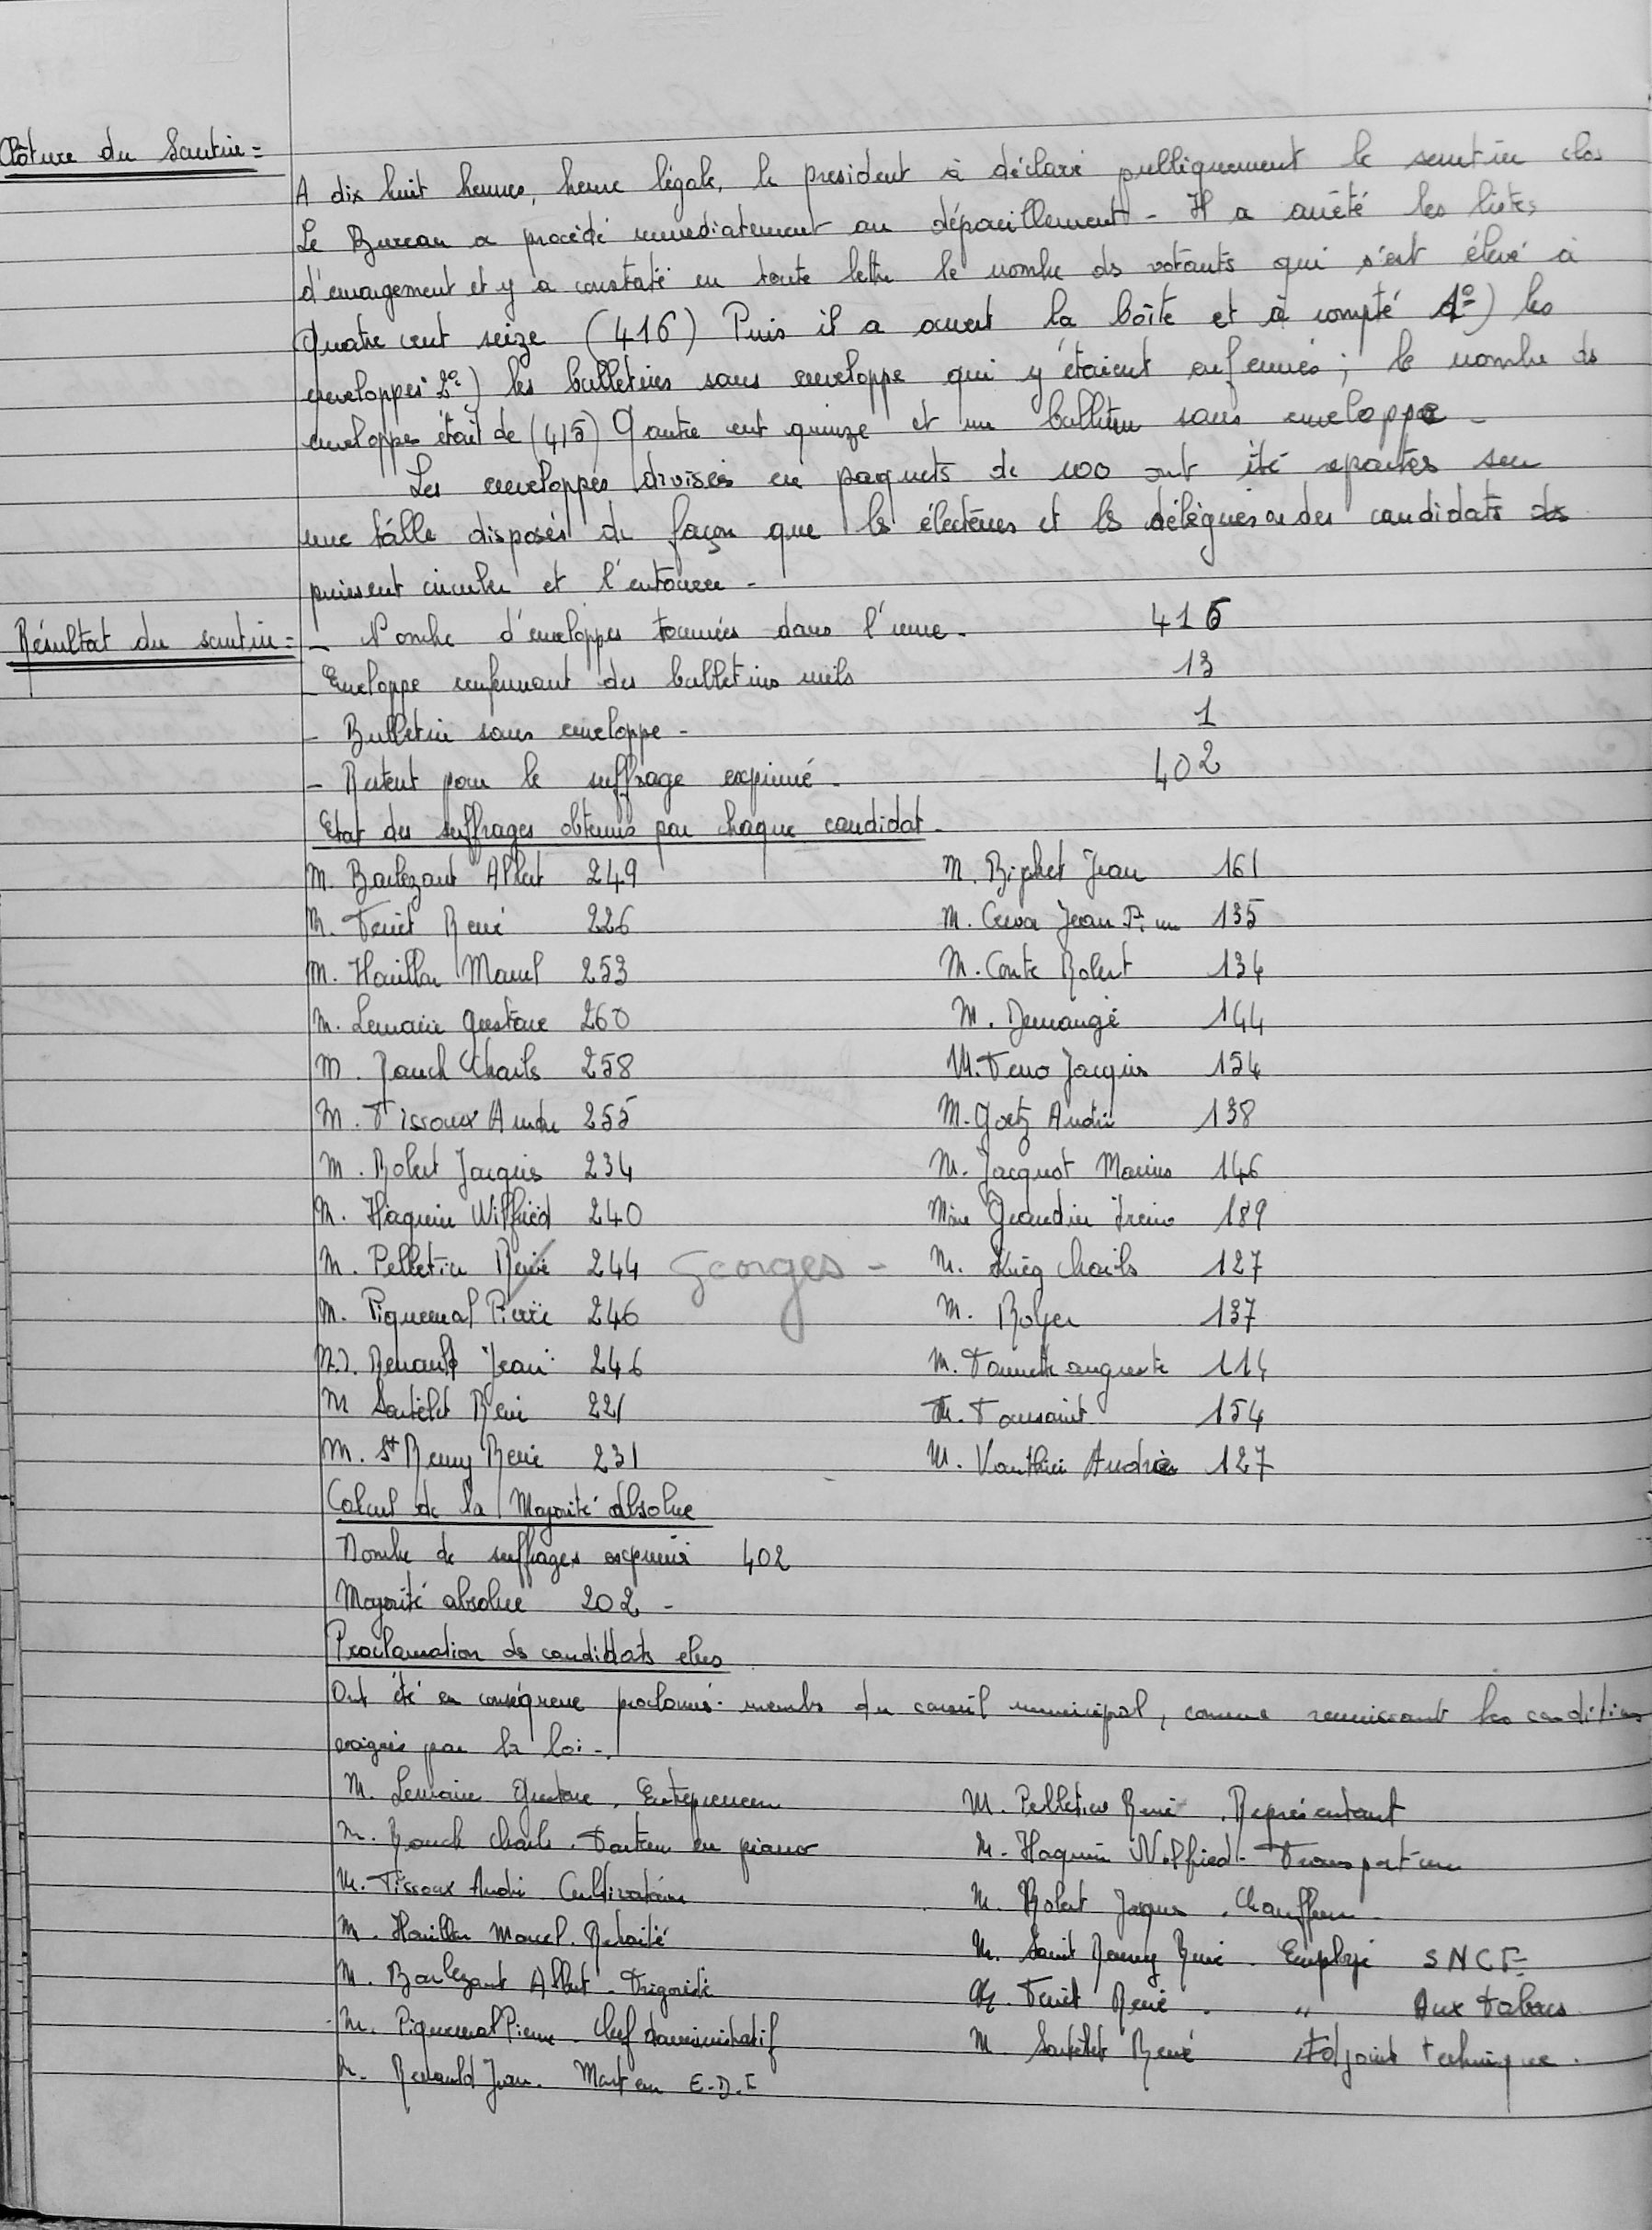 Clôture du Scrutin =
A dix huit heures, heure légale, le president à déclaré publiquement le scrutin clos
Le Bureau a procédé immediatement au dépouillement - Il a arrêté les listes
d'emargement et y a constaté en toute lettre le nombre ds votants qui s'est élevé à
Quatre cent seize (416) Puis il a ouvert la boîte et à compté 1º) les
enveloppes 2º) les bulletins sans enveloppe qui y étaient enfermés ; le nombre ds
enveloppes était de (415) Quatre cent quinze et un bulletin sans enveloppe -
Les enveloppes divisées en paquets de 100 ont été reparties sur
une table disposés de façon que ls électeurs et ls délégués des candidats
puissent circuler et l'entourer -
Résultat du scrutin =
- Nombre d'enveloppes trouvées dans l'urne - 415
- Enveloppe renfermant des bulletins nuls 13
- Bulletin sans enveloppe - 1
- Restent pour le suffrage exprimé - 402
Etat des suffrages obtenus par chaque candidat -
M. Barlezant Albert 249 M. Jean 161
M. René 226 M. Jean 135
M. Houillon Marcel 253 M. Conte Robert 134
M. Lemaire Gustave 260 M. Demangé 144
M. Rauch Charles 258 M. Jacques 154
M. Tissoux Andre 255 M. Goetz André 138
M. Robert Jacques 234 M. Jacquot Marius 146
M. Haquin Wilfried 240 Mme 189
M. Pelletier René 244 Georges - M. Charles 127
M. Piquemal Pierre 246 M. 137
M. Renauld Jean 246 M. auguste 114
M Sautelet René 221 M. Toussaint 154
M. St Remy René 231 M. Vauthier André 127
Calcul de la Majorité absolue
Nombre de suffrages exprimés 402
Majorité absolue 202 -
Proclamation ds candidats elus
Ont été en conséquence proclamé membs du conseil municipal, comme reunissant les conditions
exigées par la loi -
M. Lemaire Gustave . Entrepreneur M. Pelletier René . Représentant
M. Rauch Charles . en piano M. Haquin Wilfried - Transporteur
M. Tissoux André Cultivateur M. Robert Jacques . Chauffeur -
M. Houillon Marcel . Retraité M. Saint Remy René . Employé SNCF
M. Barlezant Albert . Frigoriste M. René . " Aux Tabacs
M. Piquemal Pierre - Chef M. Sautelet René Adjoint technique .
M. Renauld Jean . E.D.F